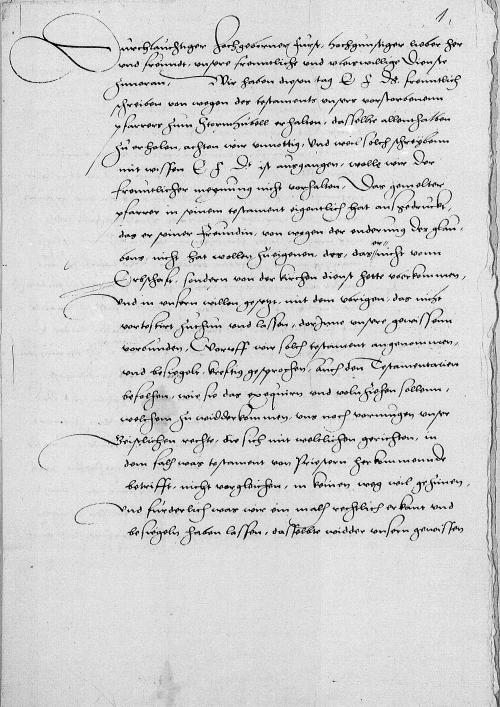 1.
Durchlauchtiger hochgeborner furst, hochgunstiger lieber her
und freundt, unsere freuntliche und vleiswillige dienste
zuuoran, Wir haben diesen tag E F D. freuntlich
schreiben von wegen des testaments unsers vorstorbenenn
pfarrers zum Stormthtell erhalten, dasselbe allenthalben
zu erholen, achten wir unnottig, Und weil solch schreybenn
mit wissen E F D. ist ausgangen, wolle wir der
freuntlicher meynung nicht vorhalten, Das gemelter
pfarrer in seinem testament eigentlich hat ausgedruckt,
das er seiner freundin, von wegen der enderung des glau-
bens, nicht hat wollen zueigenen, des, das er nicht vonn
Erbschafft, sondern von der kirchen dienst hette vberkommen,
und in unsern willen gesetzt, mit dem vbrigen, das nicht
vortestirt zuthun und lassen, dorynne unsere gewissenn
vorbunden, Worauff wir solch testament angenommen,
und besiegelt, krefftig gesprochen, auch den Testamentarien
befolhen, wie sie das exequirn und volnziehen sollenn,
welchem zu widderkommen, uns noch vormugen unser
Geistlichen rechte, die sich mit weltlichen gerichten, in
dem falh was testament von Priestern herkommende
betrifft, nicht vorgleichen, in keinen weg wil gezimen,
Und furderlich was wir ein malh rechtlich erkant und
besiegeln haben lassen, dasselbte widder unsern gewissen